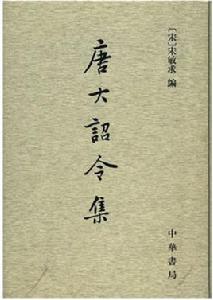 [宋]宋敏求 编
唐大詔令集
中華書局